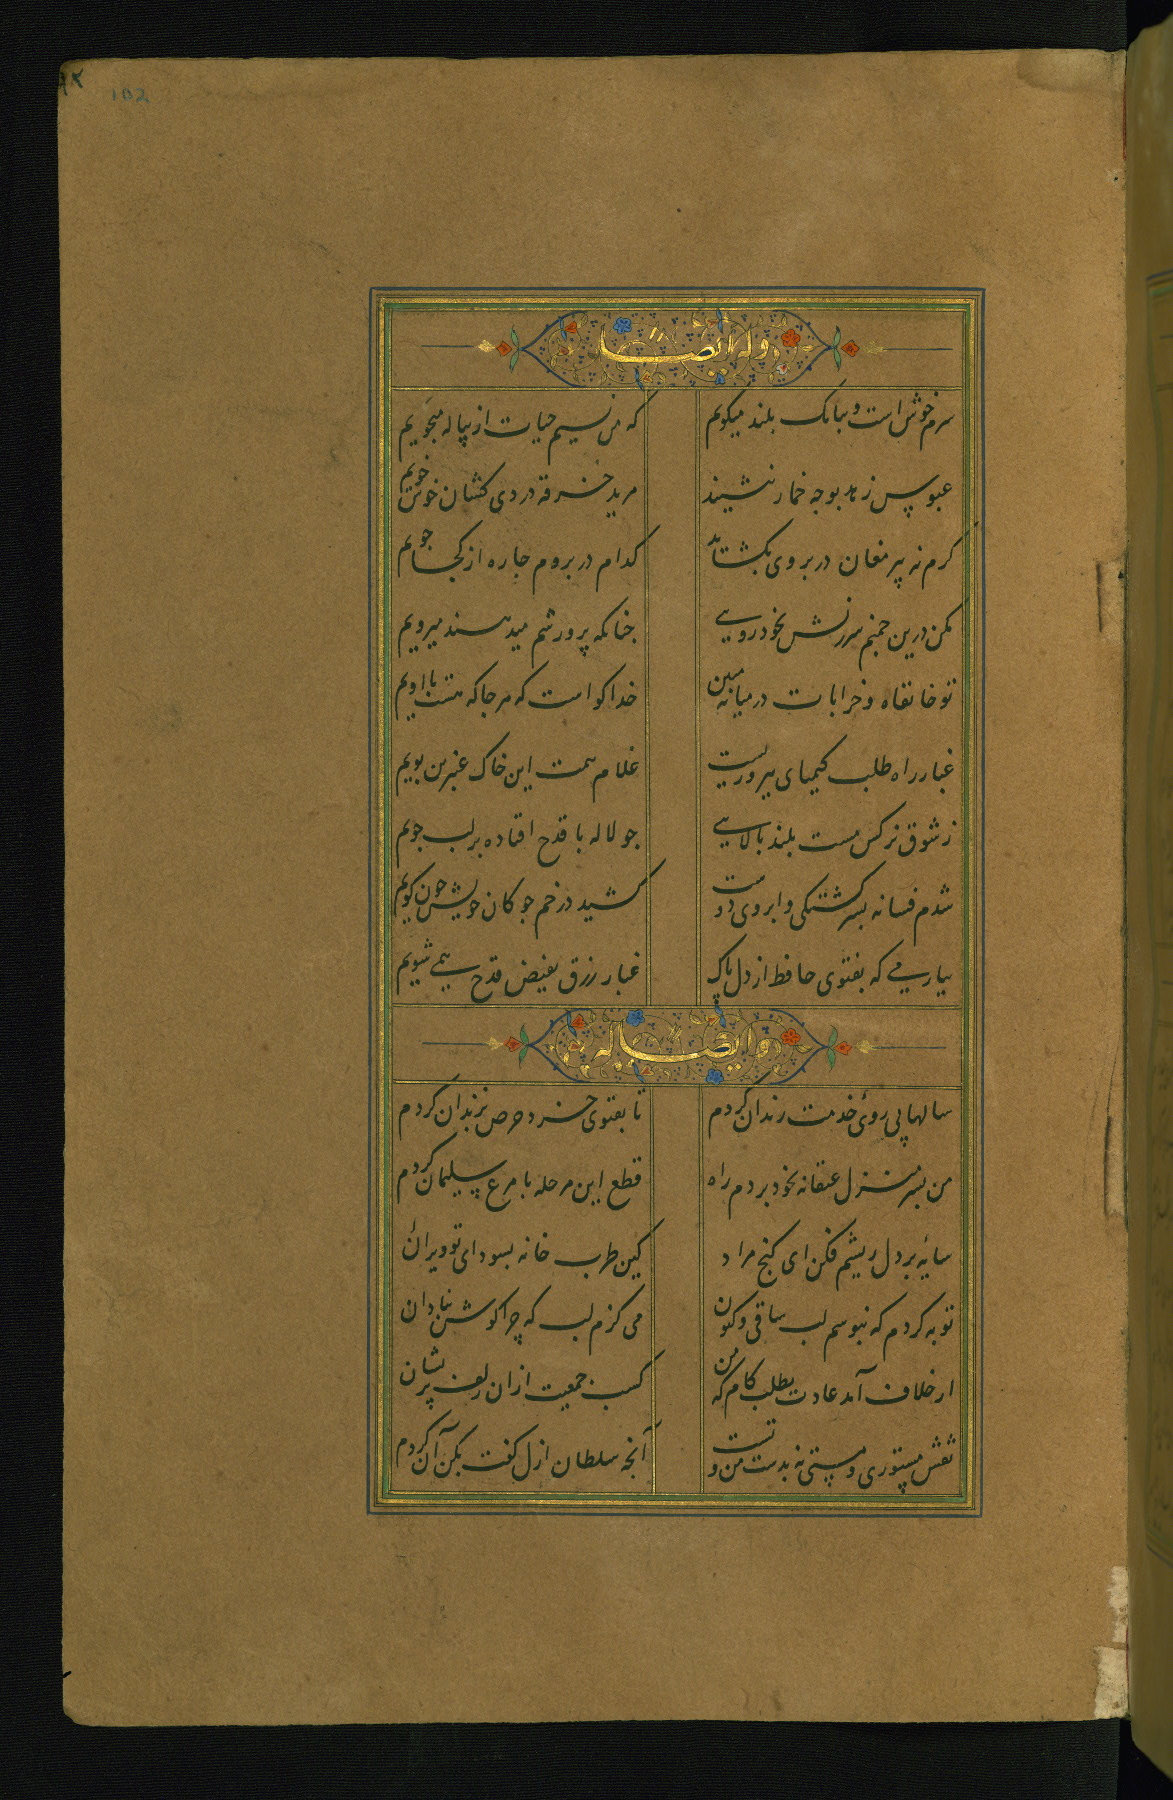 ۹۲
102
وله ایضا
سرم خوش است و ببانک بلند میکویم که من نسیم حیات از پیاله میجویم
عبوس زهد بوجه خمار ننشیند مرید خرقه دردی کشان خوش خویم
کرم نه پیر مغان در بروی بکشاید کدام در بروم جاره از کجا جویم
مکن درین جمنم سرزنش بخودرویی جنانکه پرورشم میدهند میرویم
تو خانقاه و خرابات در میانه مبین خدا کواست که هر جا که هست با اویم
غبار راه طلب کیمیای بهروزیست غلام همت این خاک عنبرین بویم
ز شوق نرکس مست بلند بالایی جو لاله با قدح افتاده بر لب جویم
شدم فسانه بسرکشتکی و ابروی دوست کشید در خم جوکان خویش جون کویم
بیار می که بفتوی حافظ از دل پاک غبار زرق بفیض قدح همی شویم
وله ایضا
سالها پی روئ خدمت رندان کردم تا بفتوی خرد حرص بزندان کردم
من بسر منزل عنقا نه بخود بردم راه قطع این مرحله با مرغ سلیمان کردم
سایه بر دل ریشم فکن ای کنج مراد کین طرب خانه بسودای تو ویران
توبه کردم که نبوسم لب ساقی و کنون می کزم لب که چرا کوش بنادان
از خلاف آمد عادت بطلب کام که من کسب جمعیت از ان زلف پریشان
نقش مستوری و مستی نه بدست من و تست آنجه سلطان ازل کفت بکن آن کردم